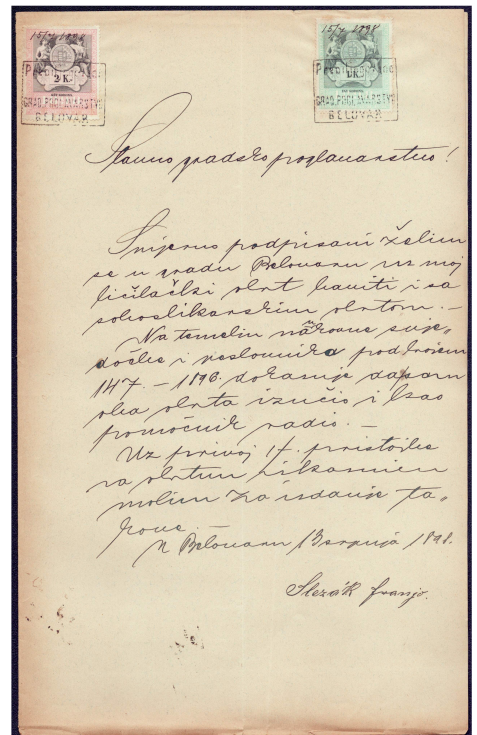 15/7 1898
2 K.
GRAD. POGLAVARSTVO
BELOVAR
15/7 1898
1 K.
GRAD. POGLAVARSTVO
BELOVAR
Slavno gradsko poglavarstvo!
Smjerno podpisani želim
se u gradu Belovaru uz moj
ličilački obrt baviti i sa
soboslikarskim obrtom. –
Na temelju naukovne svje„
dočbe i poslovnika pod brojem
147. – 1896. dokazuje da sam
oba obrta izučio i kao
pomoćnik radio. –
Uz privoj 1 f. pristojbe
za obrtnu iskaznicu
molim za izdanje ta„
kove. –
U Belovaru 13 srpnja 1898.
Slezák Franjo.